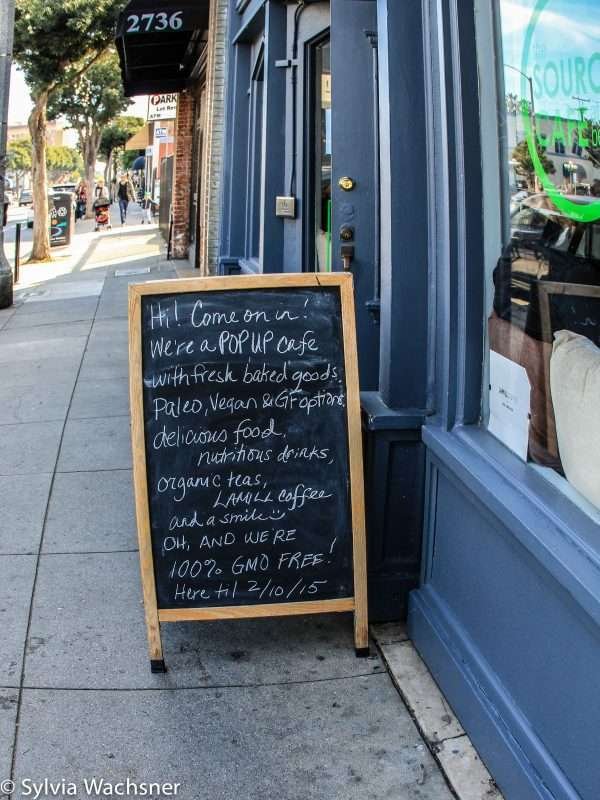 2736
PARK
ATM
SOURC
CAFE
Hi! Come on in!
We're a POP UP cafe
with fresh baked goods.
Paleo, Vegan & GF options,
delicious food,
nutritious drinks,
organic teas,
LAMILL coffee
and a smile
OH, AND WE'RE
100% GMO FREE!
Here til 2/10/15
© Sylvia Wachsner